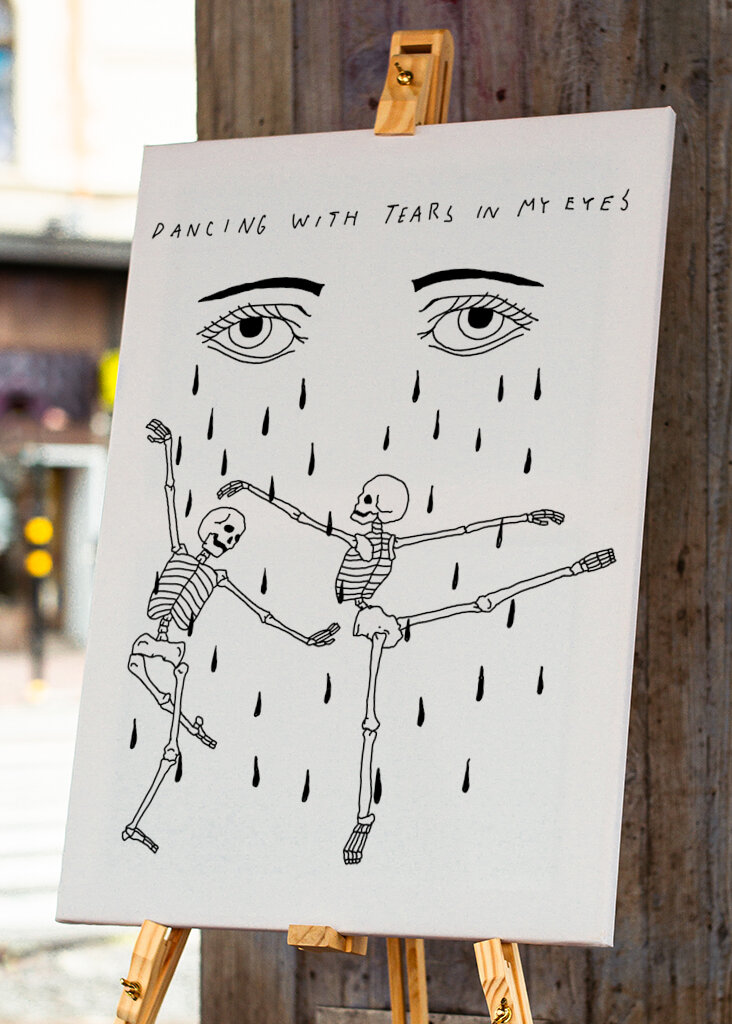 DANCING WITH TEARS IN MY EYES